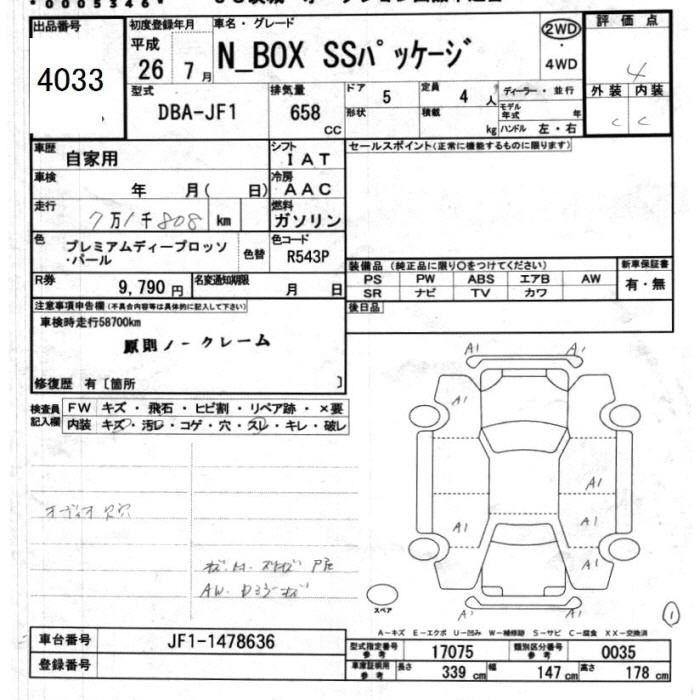 00005346
出品番号
4033
初度登録年月
平成
26 7月
車名・グレード
N_BOX SSパッケージ
2WD
・
4WD
評価点
4
外装 内装
C C
型式
DBA-JF1
排気量
658
CC
ドア
5
定員
4 人
形状
積載
kg
ディーラー・並行
モデル
年式 年
ハンドル 左・右
車歴
自家用
シフト
IAT
車検
年 月( 日)
冷房
AAC
走行
7万1千808 km
燃料
ガソリン
色
プレミアムディープロッソ
・パール
色替
色コード
R543P
R券
9,790 円
名変通知期限
月 日
セールスポイント(正常に機能するものに限ります)
装備品 (純正品に限り○をつけてください)
PS PW ABS エアB AW
SR ナビ TV カワ
新車保証書
有・無
後日品
注意事項申告欄(不具合内容等は具体的に記入して下さい)
車検時走行58700km
原則ノークレーム
修復歴 有〔箇所 〕
検査員
記入欄
FW キズ・飛石・ヒビ割・リペア跡・×要
内装 キズ・汚レ・コゲ・穴・スレ・キレ・破レ
A1 A1
A1
A1
A1 A1
A1
A1 A1
スペア
1
A-キズ E-エクボ U-凹み W-補修跡 S-サビ C-腐食 XX-交換済
車台番号
JF1-1478636
登録番号
型式指定番号
参考
17075
類別区分番号
参考
0035
車庫証明用
参考
長さ 339 cm 幅 147 cm 高さ 178 cm